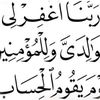 ربنا اغفر لى
ولولدى وللمؤمنين
يوم يقوم الحساب